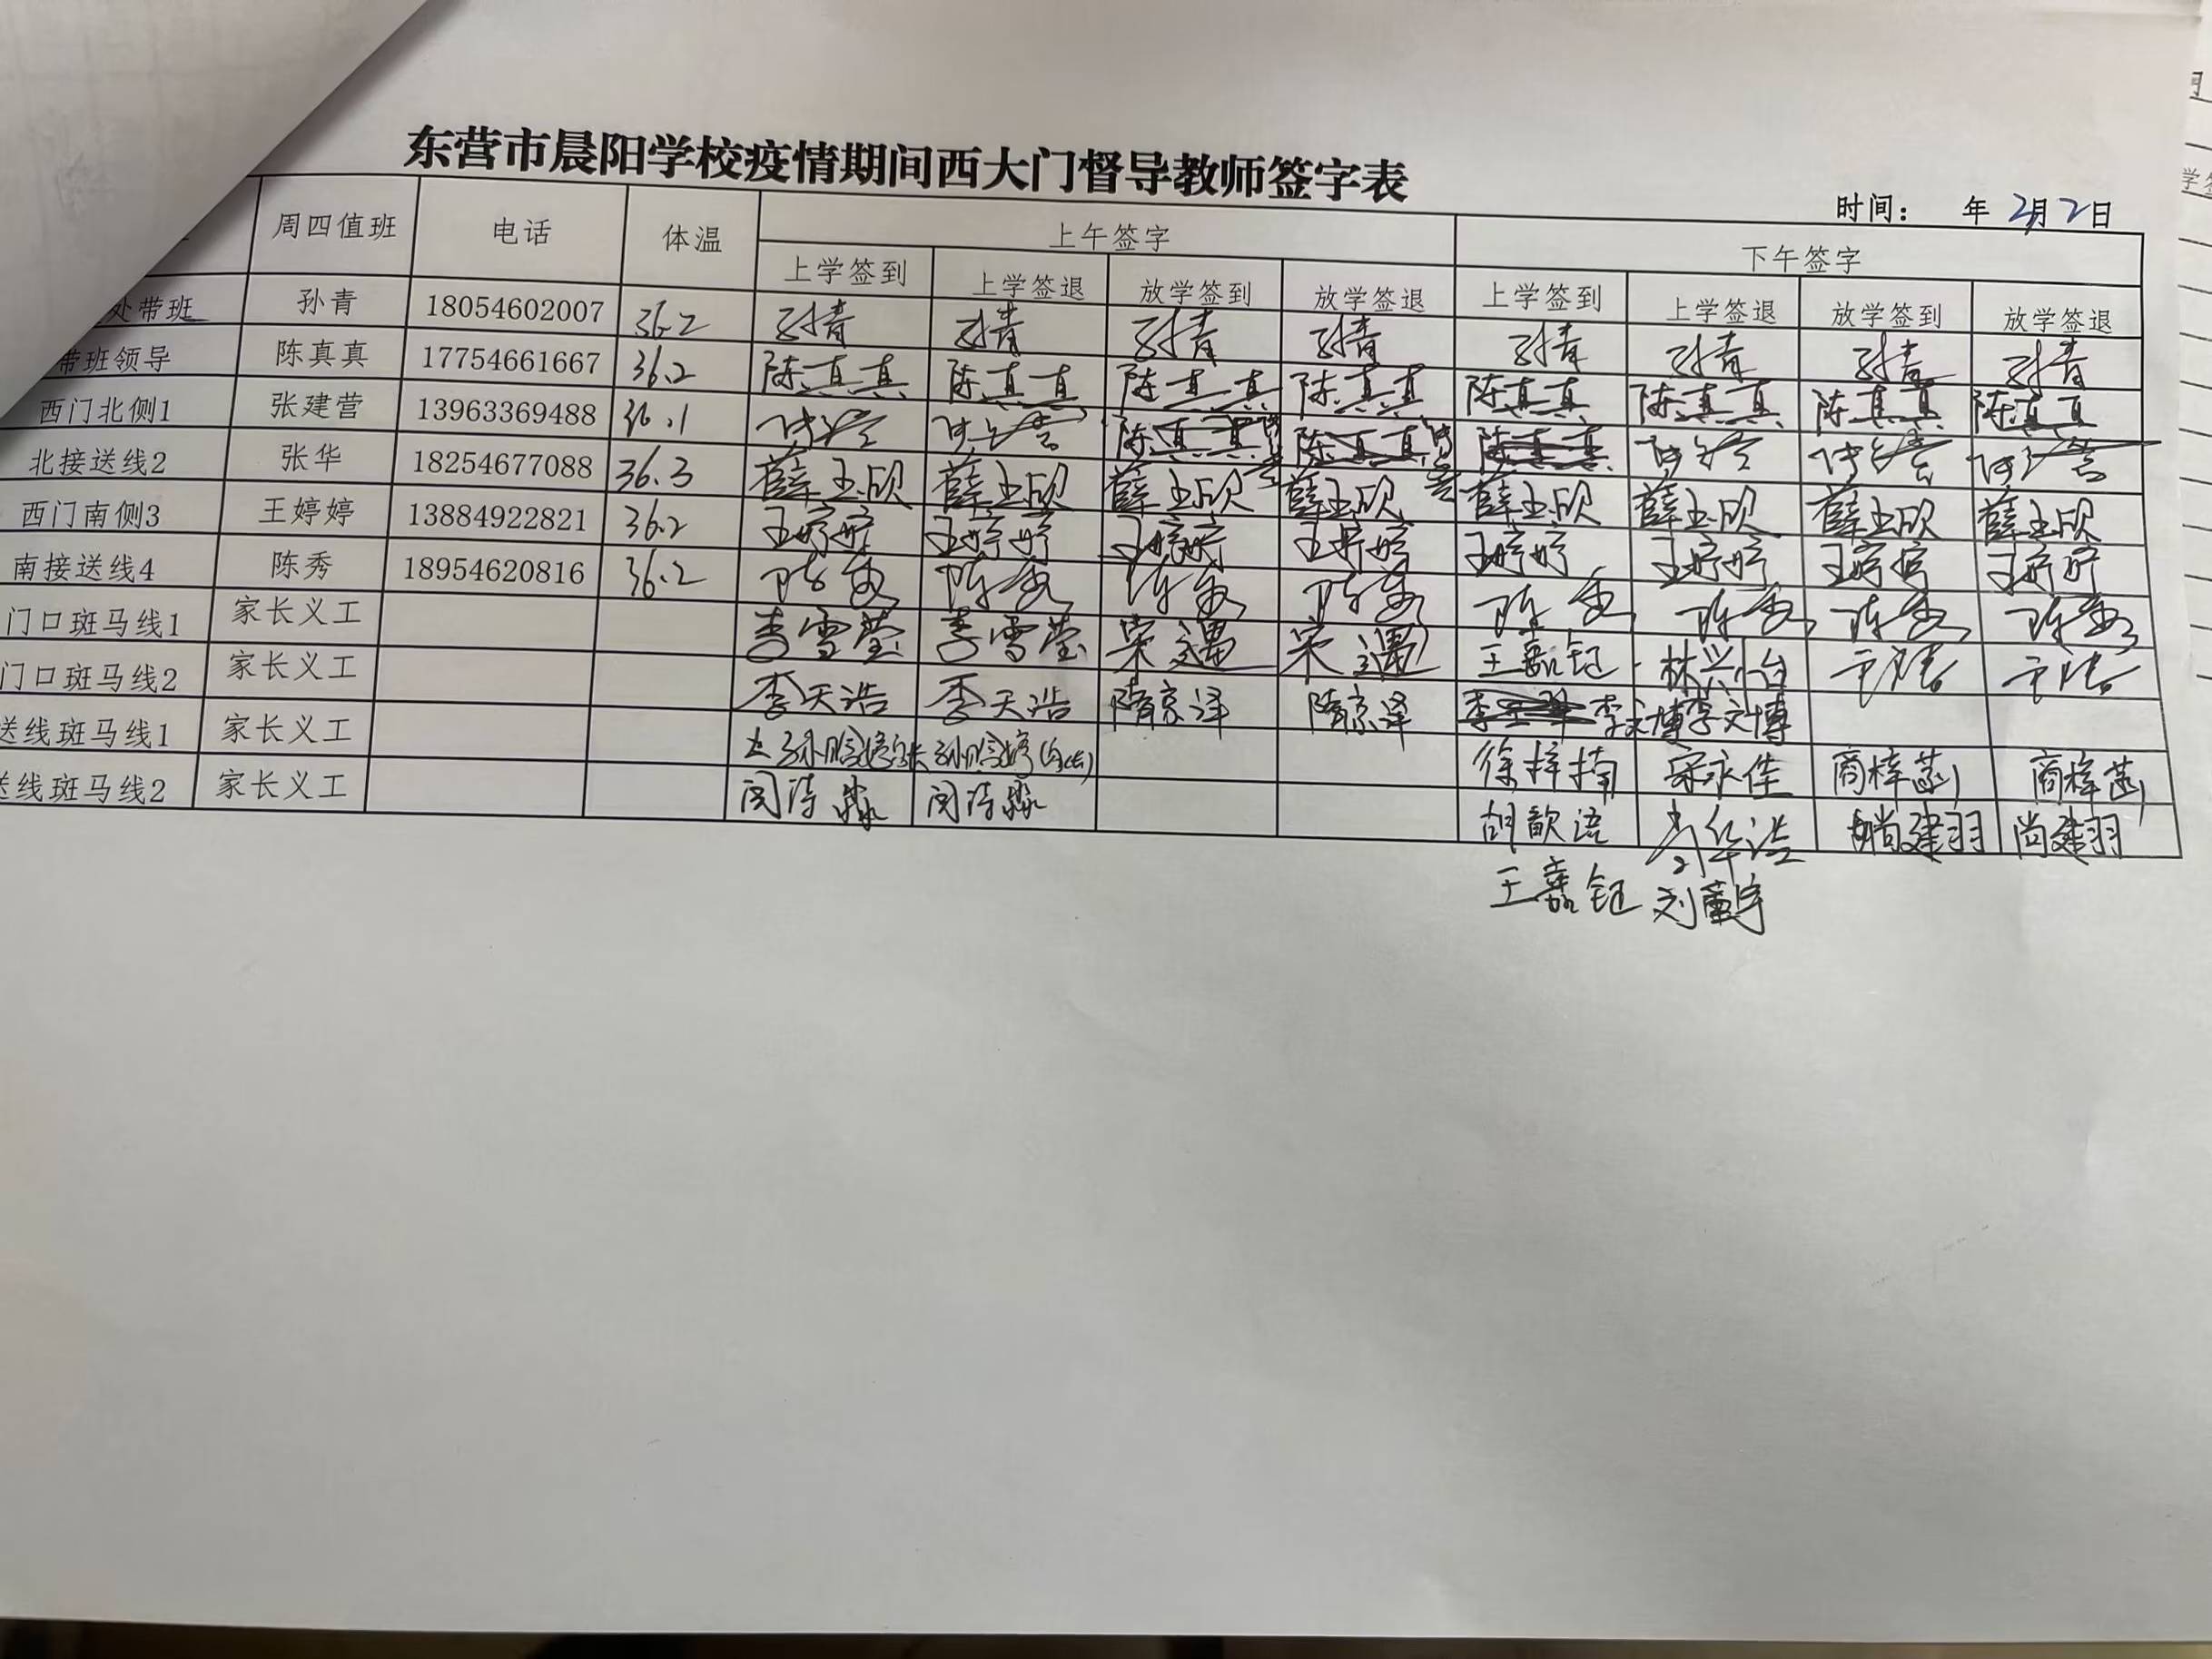 东营市晨阳学校疫情期间西大门督导教师签字表
时间： 年 2月2日
周四值班 电话 体温 上午签字 下午签字
上学签到 上学签退 放学签到 放学签退 上学签到 上学签退 放学签到 放学签退
处带班 孙青 18054602007 36.2 孙青 孙青 孙青 孙青 孙青 孙青 孙青 孙青
带班领导 陈真真 17754661667 36.2 陈真真 陈真真 陈真真 陈真真 陈真真 陈真真 陈真真 陈真真
西门北侧1 张建营 13963369488 36.1 陈真真 陈真真 陈真真
北接送线2 张华 18254677088 36.3 薛玉欣 薛玉欣 薛玉欣 薛玉欣 薛玉欣 薛玉欣 薛玉欣 薛玉欣
西门南侧3 王婷婷 13884922821 36.2 王婷婷 王婷婷 王婷婷 王婷婷 王婷婷 王婷婷 王婷婷 王婷婷
南接送线4 陈秀 18954620816 36.2 陈秀 陈秀 陈秀 陈秀 陈秀 陈秀 陈秀 陈秀
门口斑马线1 家长义工 李雪莹 李雪莹 荣遇 荣遇 王嘉钰
门口斑马线2 家长义工 李天浩 李天浩 隋京泽 隋京泽 李文博 李文博
送线斑马线1 家长义工 徐梓楠 宋永佳 商梓菡 商梓菡
送线斑马线2 家长义工 胡歆语 尚建羽 尚建羽
王嘉钰